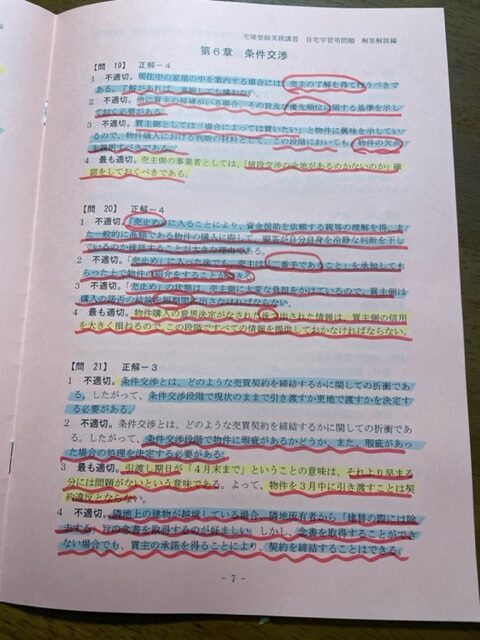 宅建登録実務講習 自宅学習用問題 解答解説編
第6章 条件交渉
【問 19】 正解－4
1 不適切。居住中の家屋の中を案内する場合には、売主の了解を得て行うべきで
ある。了解があれば、実施しても構わない。
2 不適切。他に買主の候補がいる場合、その旨及び優先順位に関する基準を示し
ておく必要がある。
3 不適切。買主側としては「場合によっては買いたい」と物件に興味を示してい
るので、物件購入における判断の材料として、この段階においても、物件の欠点
を説明すべきである。
4 最も適切。売主側の事業者としては、「値段交渉の余地があるのかないのか」確
認をしておくべきである。
【問 20】 正解－4
1 不適切。「売止め」に入ることにより、資金援助を依頼する親等の理解を得、ま
た一般的に高額である物件の購入に際して、顧客が自分自身を冷静な判断を下し
ているのか確認することが大きな理由である。
2 不適切。「売止め」に入った後でも、売主は「二番手であること」を承知しても
らった上で物件の紹介をすることができる。
3 不適切。「売止め」の状態は、売主側に大変な負担をかけているので、買主側は
購入の諾否の結論を短期間に出さなければならない。
4 最も適切。物件購入の意思決定がなされた後に出された情報は、買主側の信用
を大きく損ねるので、この段階ですべての情報を提供しておかなければならない。
【問 21】 正解－3
1 不適切。条件交渉とは、どのような売買契約を締結するかに関しての折衝であ
る。したがって、条件交渉段階で現状のままで引き渡すか更地で渡すかを決定す
る必要がある。
2 不適切。条件交渉とは、どのような売買契約を締結するかに関しての折衝であ
る。したがって、条件交渉段階で物件に瑕疵があるかどうか、また、瑕疵があっ
た場合の処理を決定する必要がある。
3 最も適切。引渡し期日が「4月末まで」ということの意味は、それより早まる
分には問題がないという意味である。よって、物件を3月中に引き渡すことは契
約違反とならない。
4 不適切。隣地上の建物が越境している場合、隣地所有者から「建替の際には除
去する」旨の念書を取得するのが好ましい。しかし、念書を取得することができ
ない場合でも、買主の承諾を得ることにより、契約を締結することはできる。
- 7 -